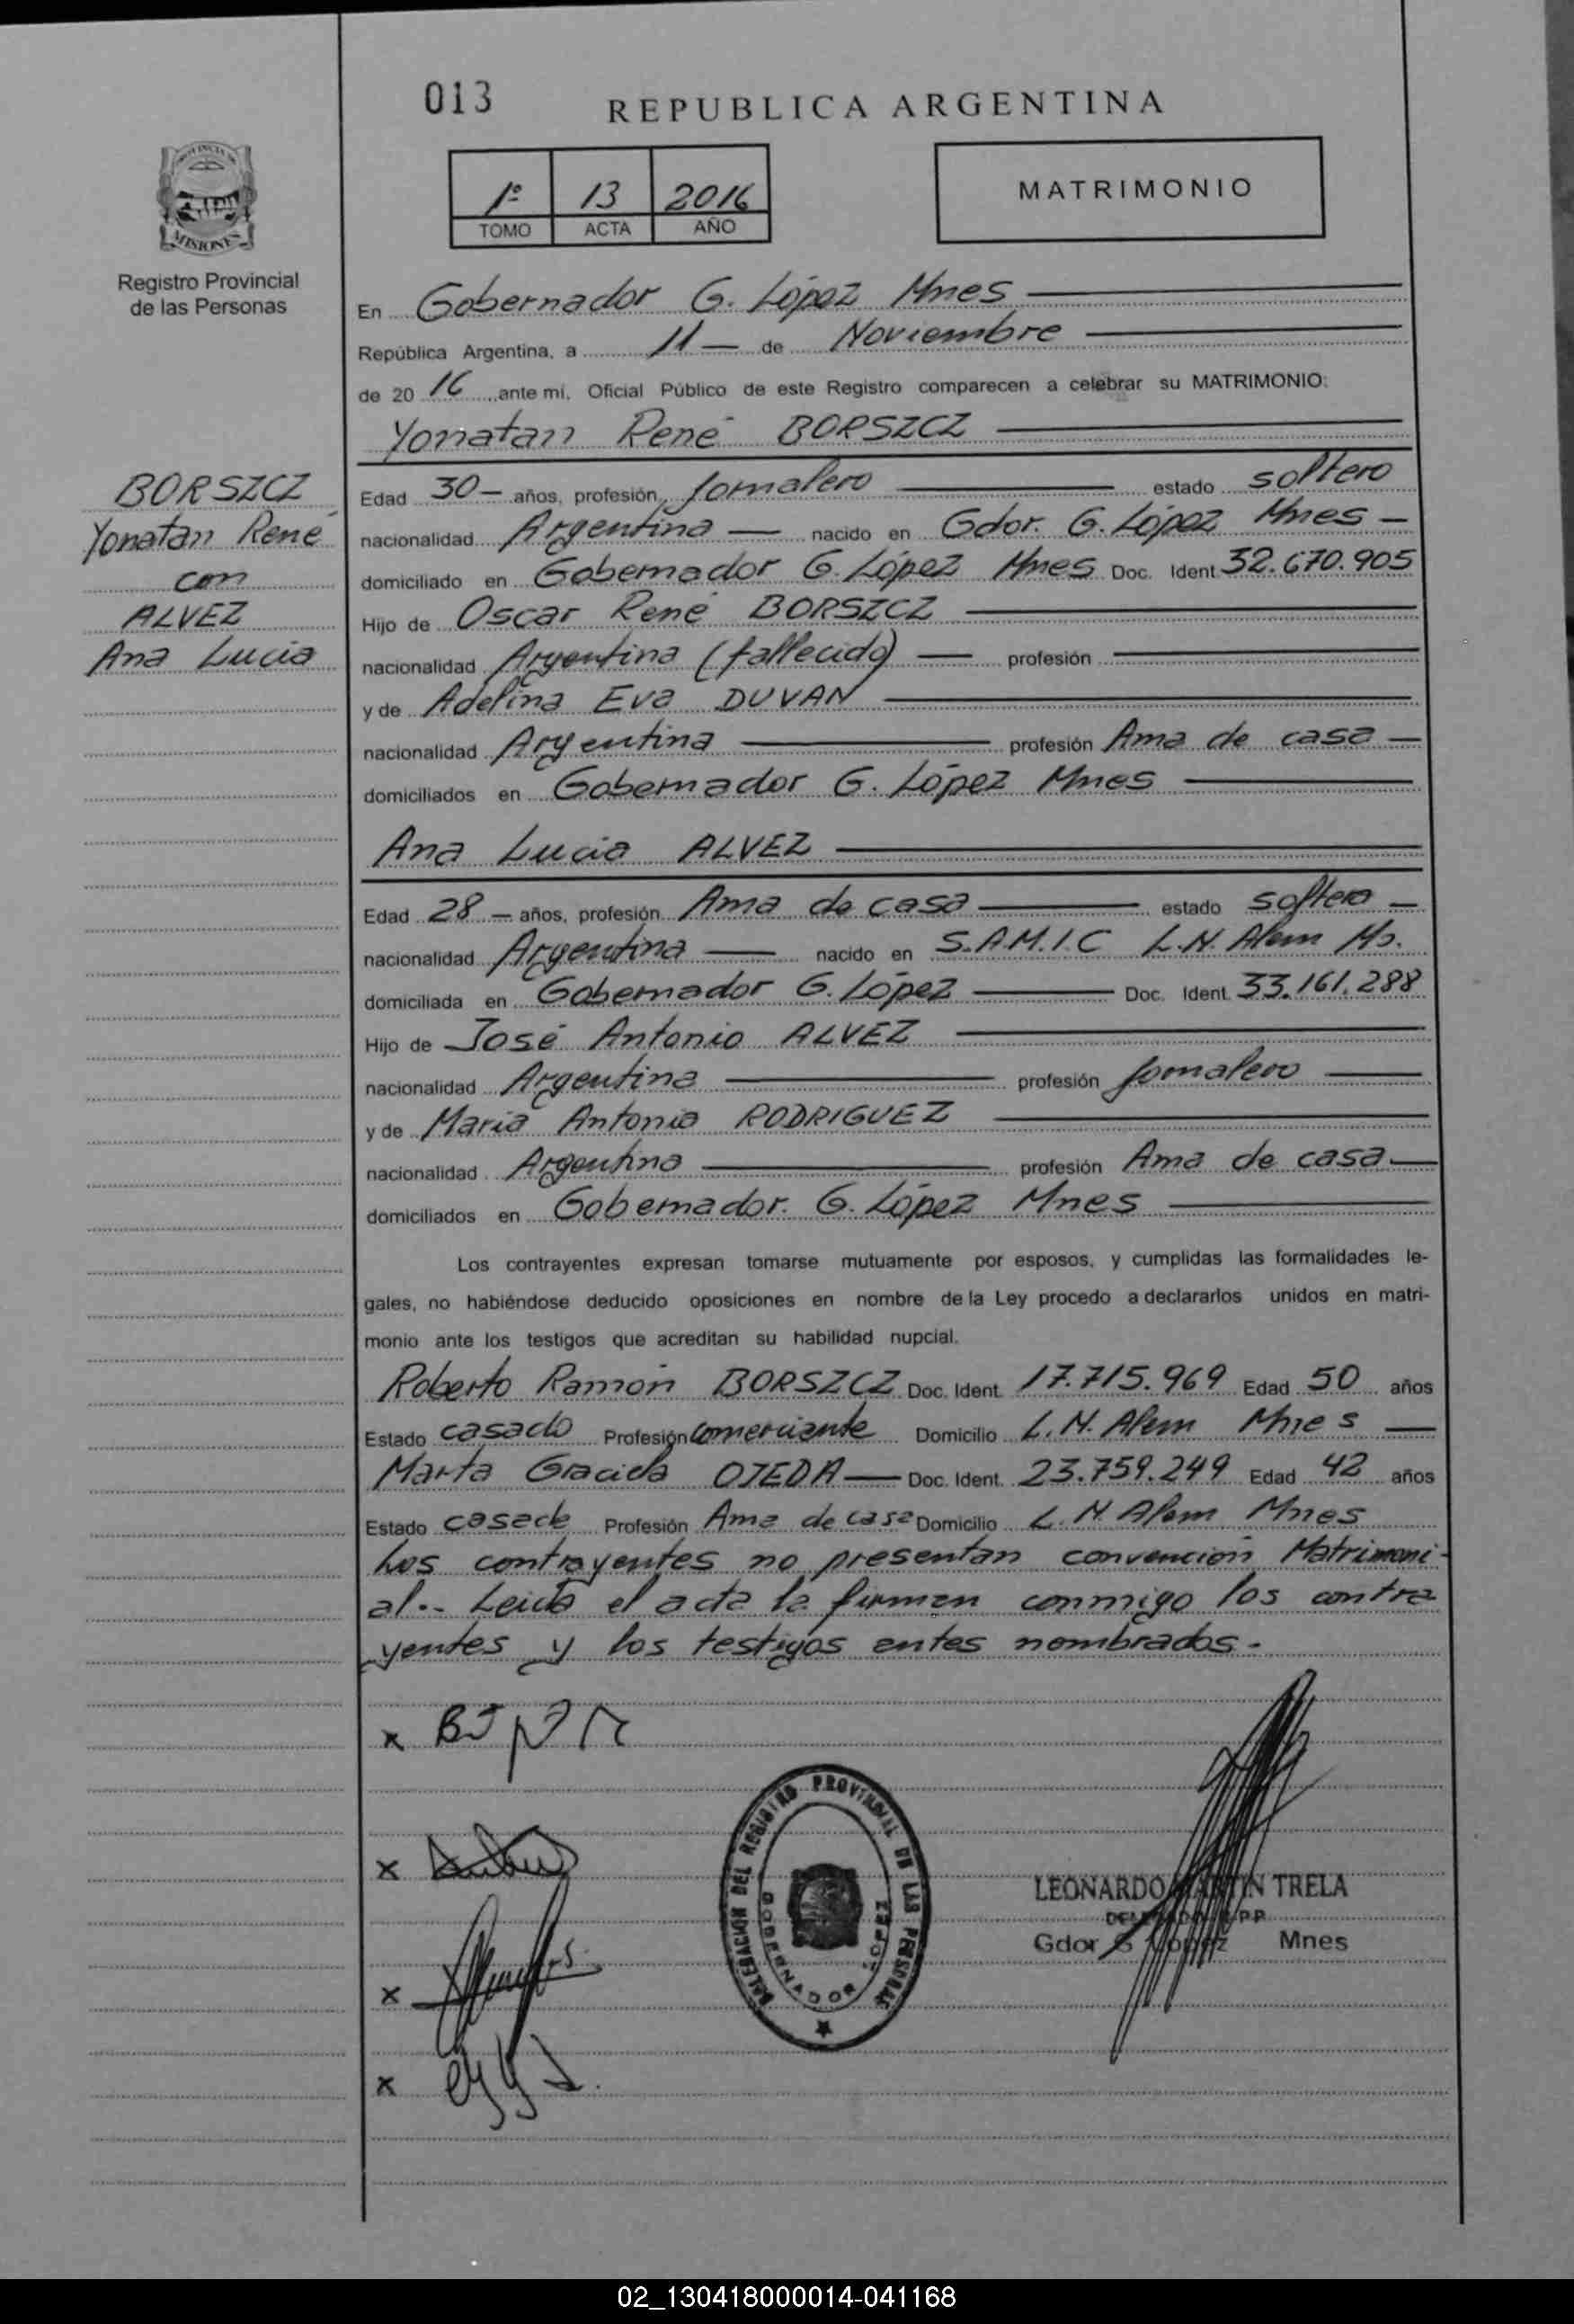 013
REPUBLICA ARGENTINA
1º 13 2016
TOMO ACTA AÑO
MATRIMONIO
PROVINCIA DE
MISIONES
Registro Provincial
de las Personas
En Gobernador G. López Mnes
República Argentina, a 11 de Noviembre
de 2016 ante mí, Oficial Público de este Registro comparecen a celebrar su MATRIMONIO:
Yonatan René BORSZCZ
BORSZCZ
Yonatan René
con
ALVEZ
Ana Lucia
Edad 30 años, profesión Jornalero estado soltero
nacionalidad Argentina nacido en Gdor. G. López Mnes
domiciliado en Gobernador G. López Mnes Doc. Ident 32.670.905
Hijo de Oscar René BORSZCZ
nacionalidad Argentina (fallecido) profesión
y de Adelina Eva DUVAN
nacionalidad Argentina profesión Ama de casa
domiciliados en Gobernador G. López Mnes
Ana Lucia ALVEZ
Edad 28 años, profesión Ama de casa estado soltera
nacionalidad Argentina nacido en S.A.M.I.C L.N. Alem Ms.
domiciliada en Gobernador G. López Doc. Ident. 33.161.288
Hijo de José Antonio ALVEZ
nacionalidad Argentina profesión Jornalero
y de Maria Antonia RODRIGUEZ
nacionalidad Argentina profesión Ama de casa
domiciliados en Gobernador. G. López Mnes
Los contrayentes expresan tomarse mutuamente por esposos, y cumplidas las formalidades le-
gales, no habiéndose deducido oposiciones en nombre de la Ley procedo a declararlos unidos en matri-
monio ante los testigos que acreditan su habilidad nupcial.
Roberto Ramón BORSZCZ Doc. Ident. 17.715.969 Edad 50 años
Estado casado Profesión comerciante Domicilio L.N. Alem Mnes
Marta Graciela OJEDA Doc. Ident. 23.759.249 Edad 42 años
Estado casada Profesión Ama de casa Domicilio L.N Alem Mnes
Los contrayentes no presentan convención Matrimoni-
al.- Leida el acta la firman conmigo los contra
yentes y los testigos antes nombrados.-
x
x
x
x
DELEGACION DEL REGISTRO PROVINCIAL DE LAS PERSONAS
GOBERNADOR LOPEZ
LEONARDO MARTIN TRELA
DELEGADO R.P.P.
Gdor G Lopez Mnes
02_130418000014-041168